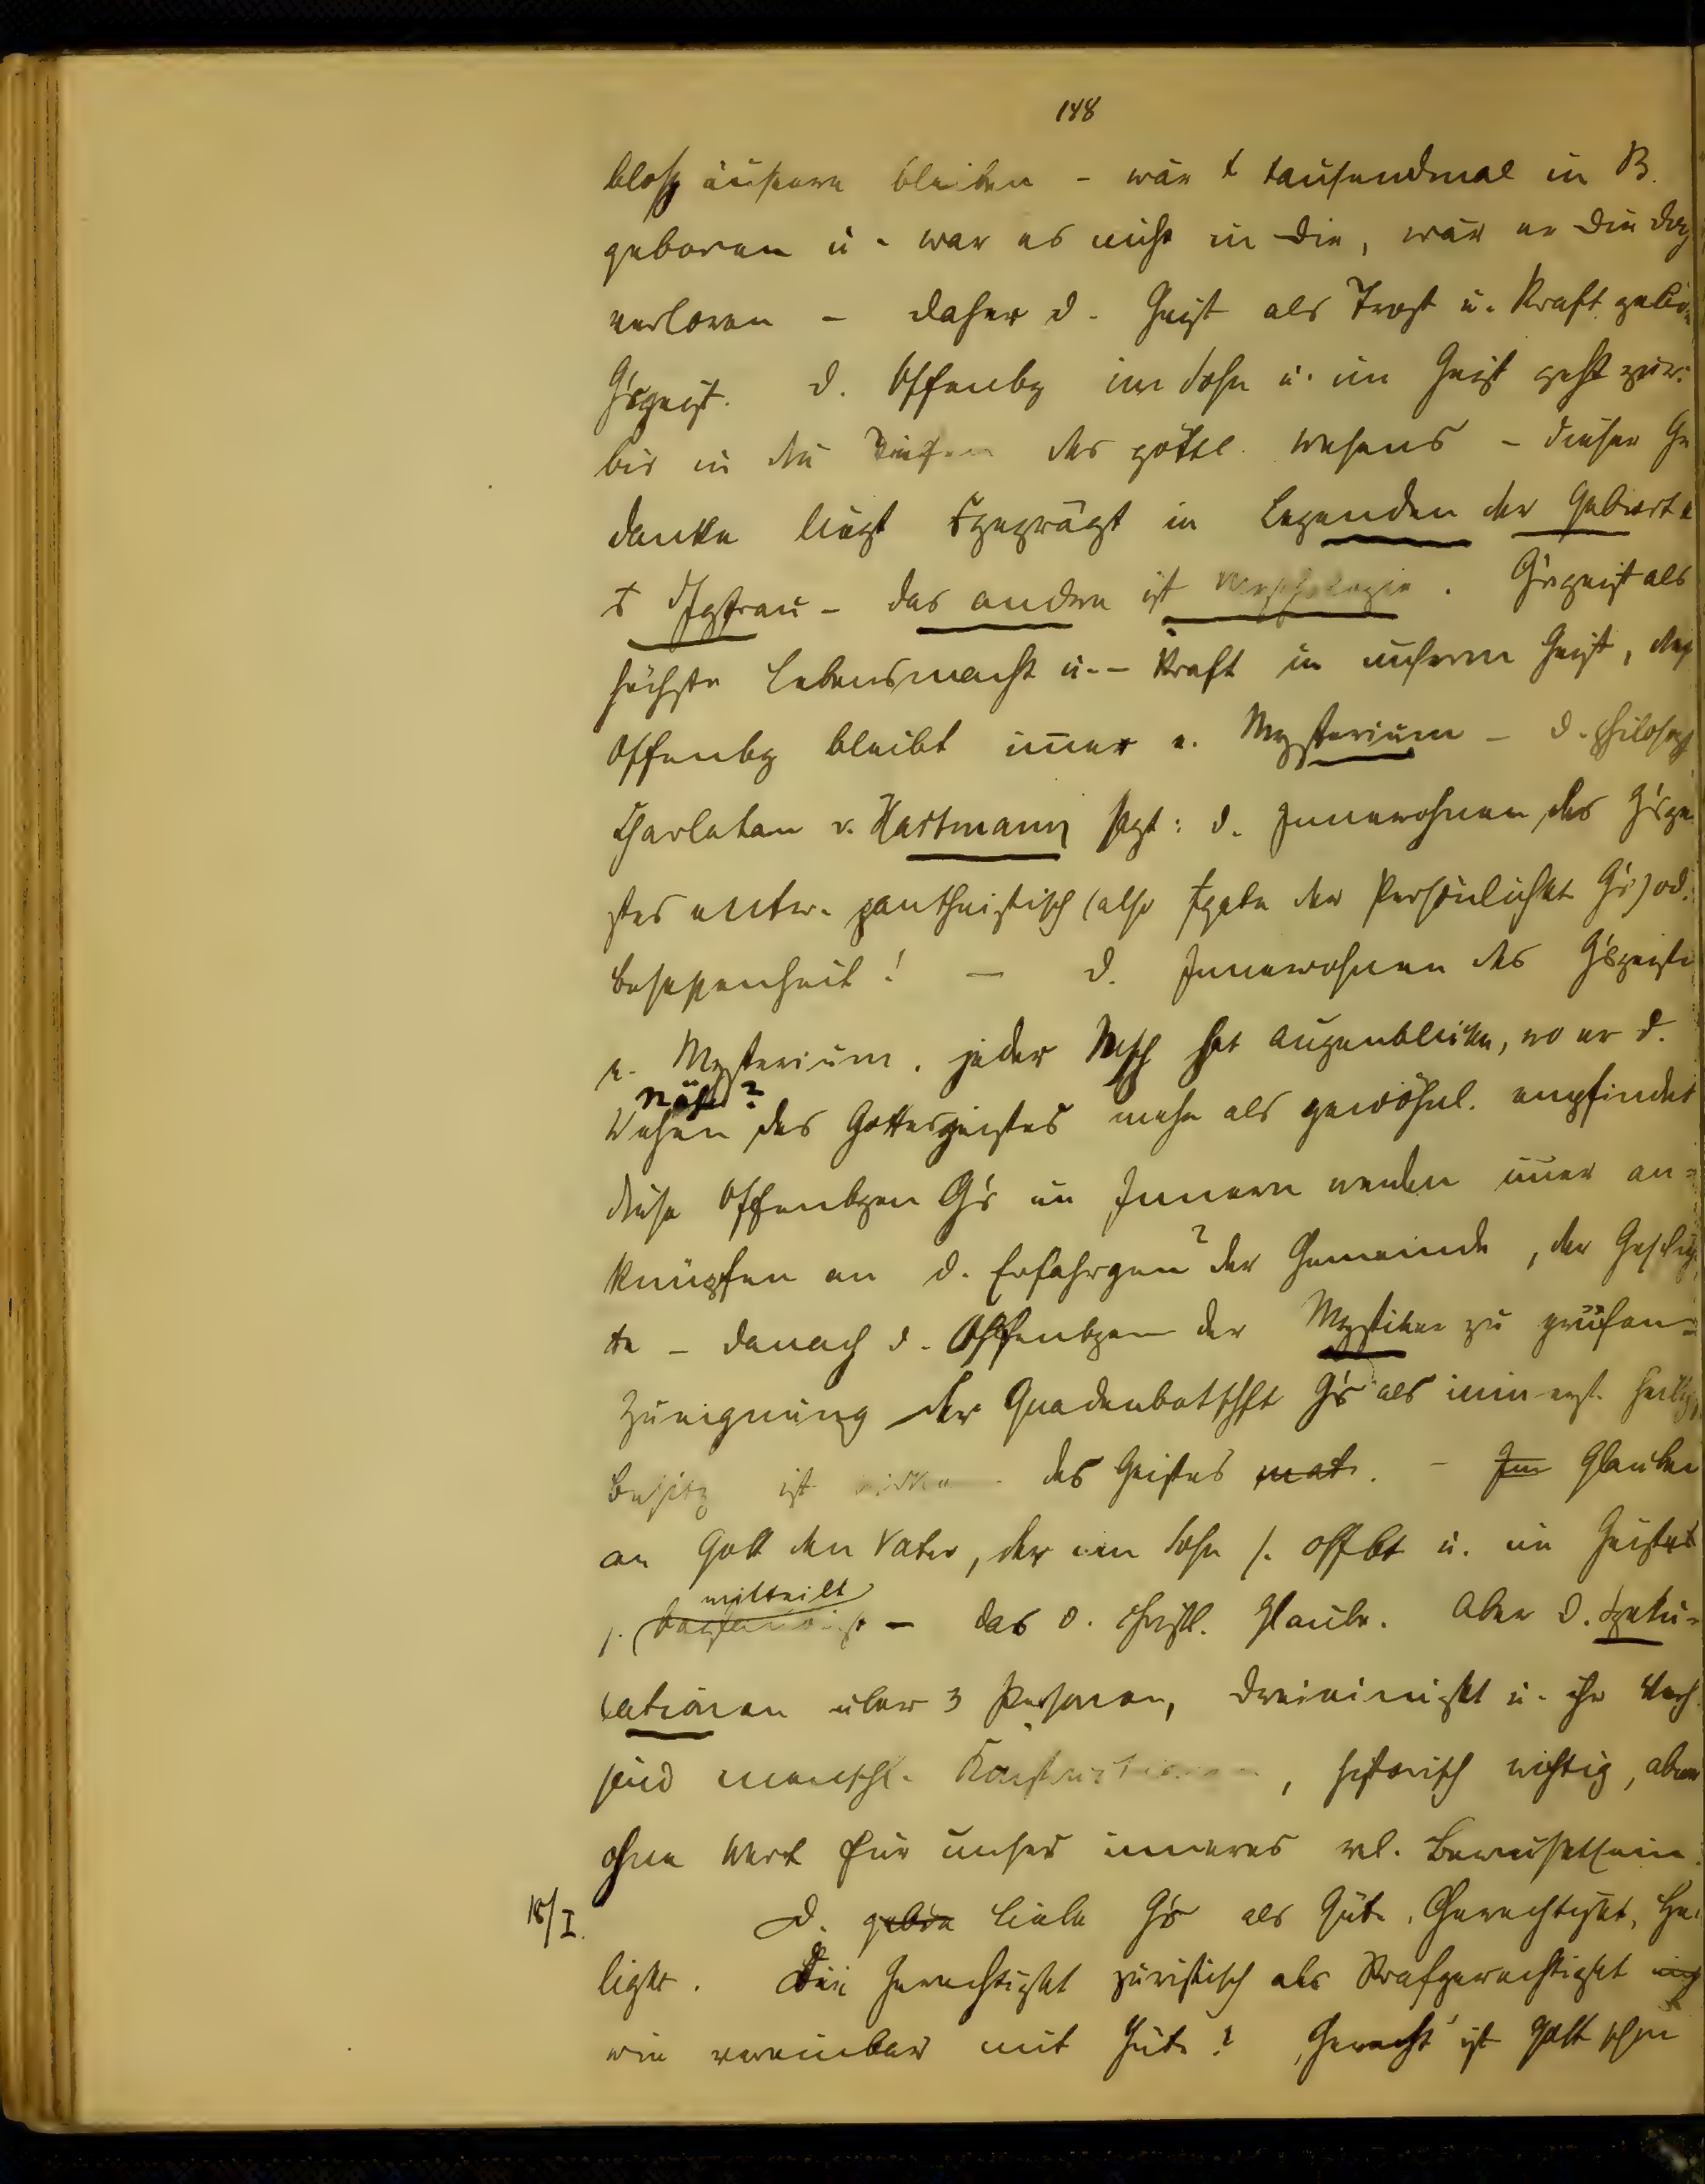 148
bloß äußere bleiben - wär t tausendmal in B.
geboren u. - war es nicht in Dir, wär er Dir doch
verloren - daher d. Geist als Trost u. Kraft
G'sgeist. d. Offenbg im Sohn u. im Geist geht zur.
bis in die Tiefen des göttl. Wesens - dieser Ge
danke liegt in Legenden der Geburt
Jgfrau - das andere ist Mythologie. G'sgeist als
höchste Lebensmacht u. - Kraft in unserm Geist, des
Offenbg bleibt im̄er e. Mysterium - d. philosoph
Charlatan v. Hartmann sagt: d. Innewohnen des G'sgei
stes entw. pantheistisch (also der Persönlichkt G's) od.
Besessenheit! - d. Innewohnen des G'sgeiste
e. Mysterium. jeder Msch hat Augenblicke, wo er d.
näh?
Wehen des Gottesgeistes mehr als gewöhnl. empfindet
diese Offenbgen G's im Innern werden im̄er an=
knüpfen an d. Erfahrgen? der Gemeinde, der Geschich
te - danach d. Offenbgen der Mystiker zu prüfen -
Zueignung der Gnadenbotschft G's als
Besitz ist des Geistes - Im Glauben
an Gott den Vater, der im Sohn s. offbt u. im Geiste
mitteilt
s. - das d. christl. Glaube. Aber d. Speku=
lationen über 3 Personen, Dreieinigkt u. ihr
sind menschl. Konstruktionen, historisch wichtig, aber
ohne Wert für unser inneres rel. Bewußtsein.
18/I. d. Liebe G's als Güte, Gerechtigkt, Hei
ligkt. Die Gerechtigkt juristisch als Strafgerechtigkt
wie vereinbar mit Güte? "Gerecht" ist Gott schon